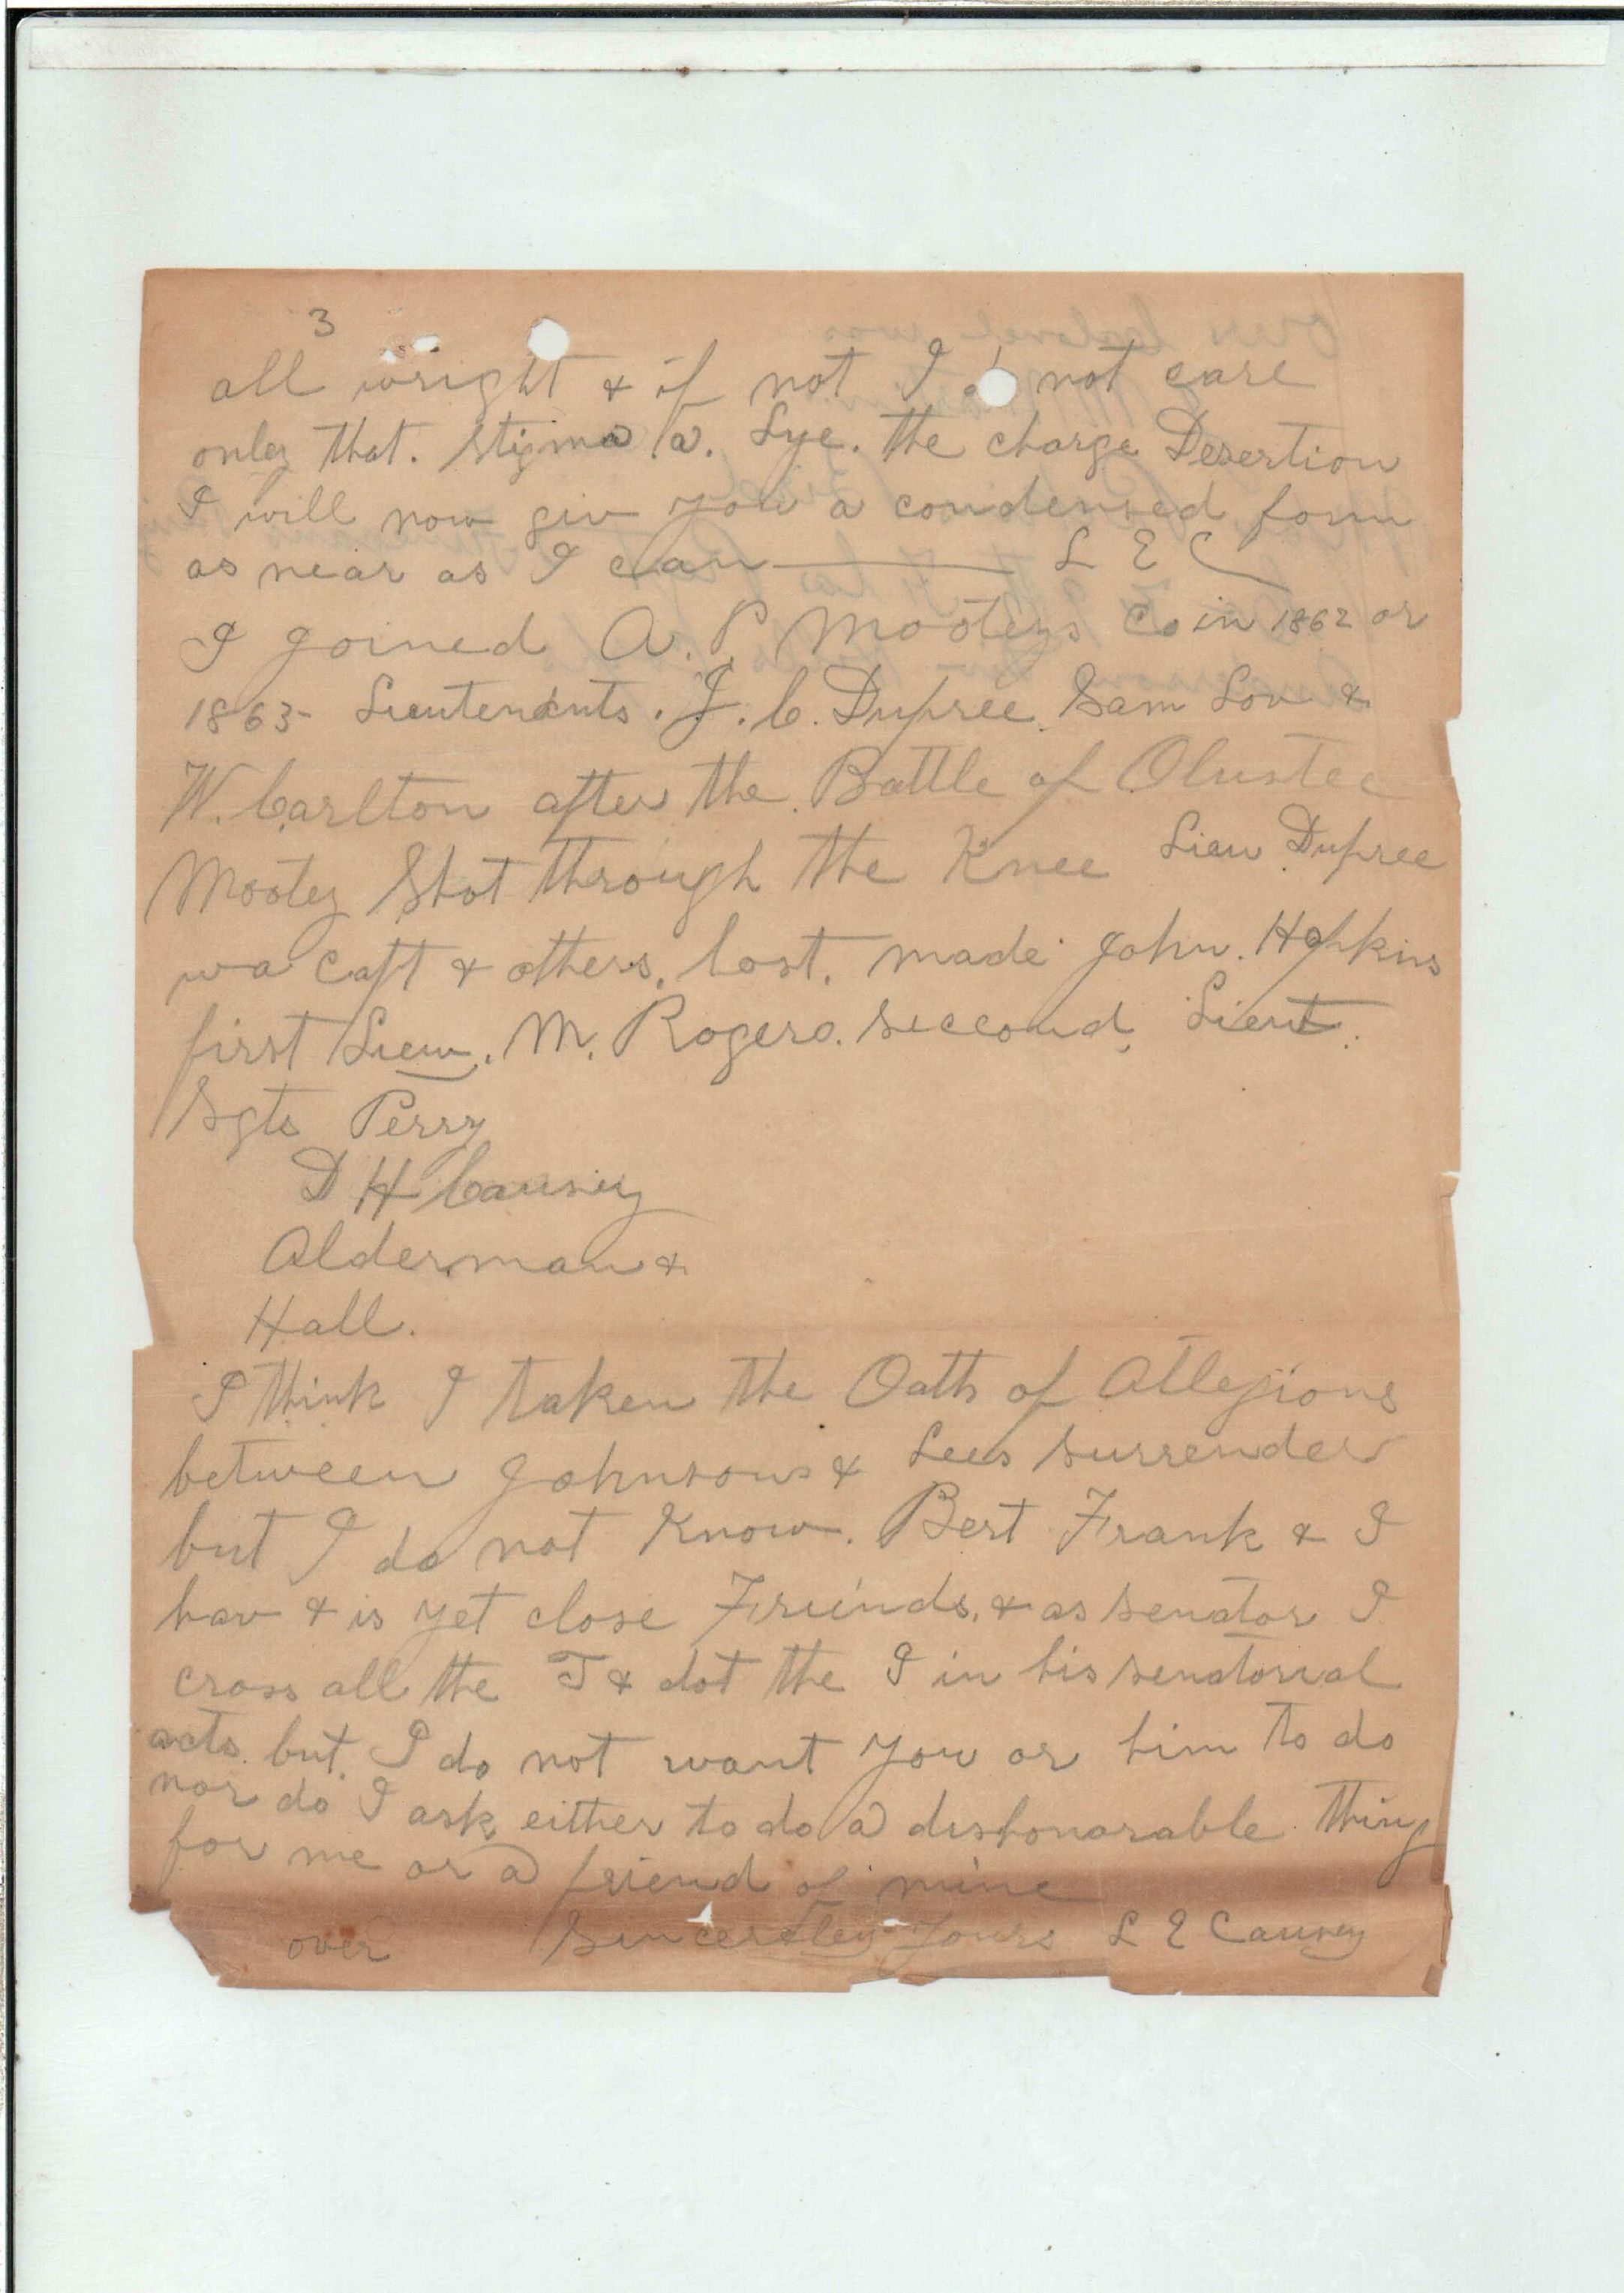 3
all wright & if not I do not care
only that. Stigma a. Lye. the charge Desertion
I will now giv you a condensed form
as near as I can——— L E C
I joined A. P. Mooteys Co in 1862 or
1863- Lieutenants. J. C. Dupree Sam Lov &
W. Carlton after the Battle of Olustee
Mootey Shot through the Knee Lieu Dupree
wa Capt & others. lost. made John. Hopkins
first Lieu. M. Rogero. seccond Lieut.
Sgts Perry
D H Causey
Alderman &
Hall.
I think I taken the Oath of Allegions
between Johnsons & Lees surrender
but I do not Know. Bert Frank & I
hav & is yet close Friends, & as senator I
cross all the T & dot the I in his senatorial
acts. but. I do not want you or him to do
nor do I ask either to do a dishonarable thing
for me or a friend of mine
over Sincerley Yours L E Causey